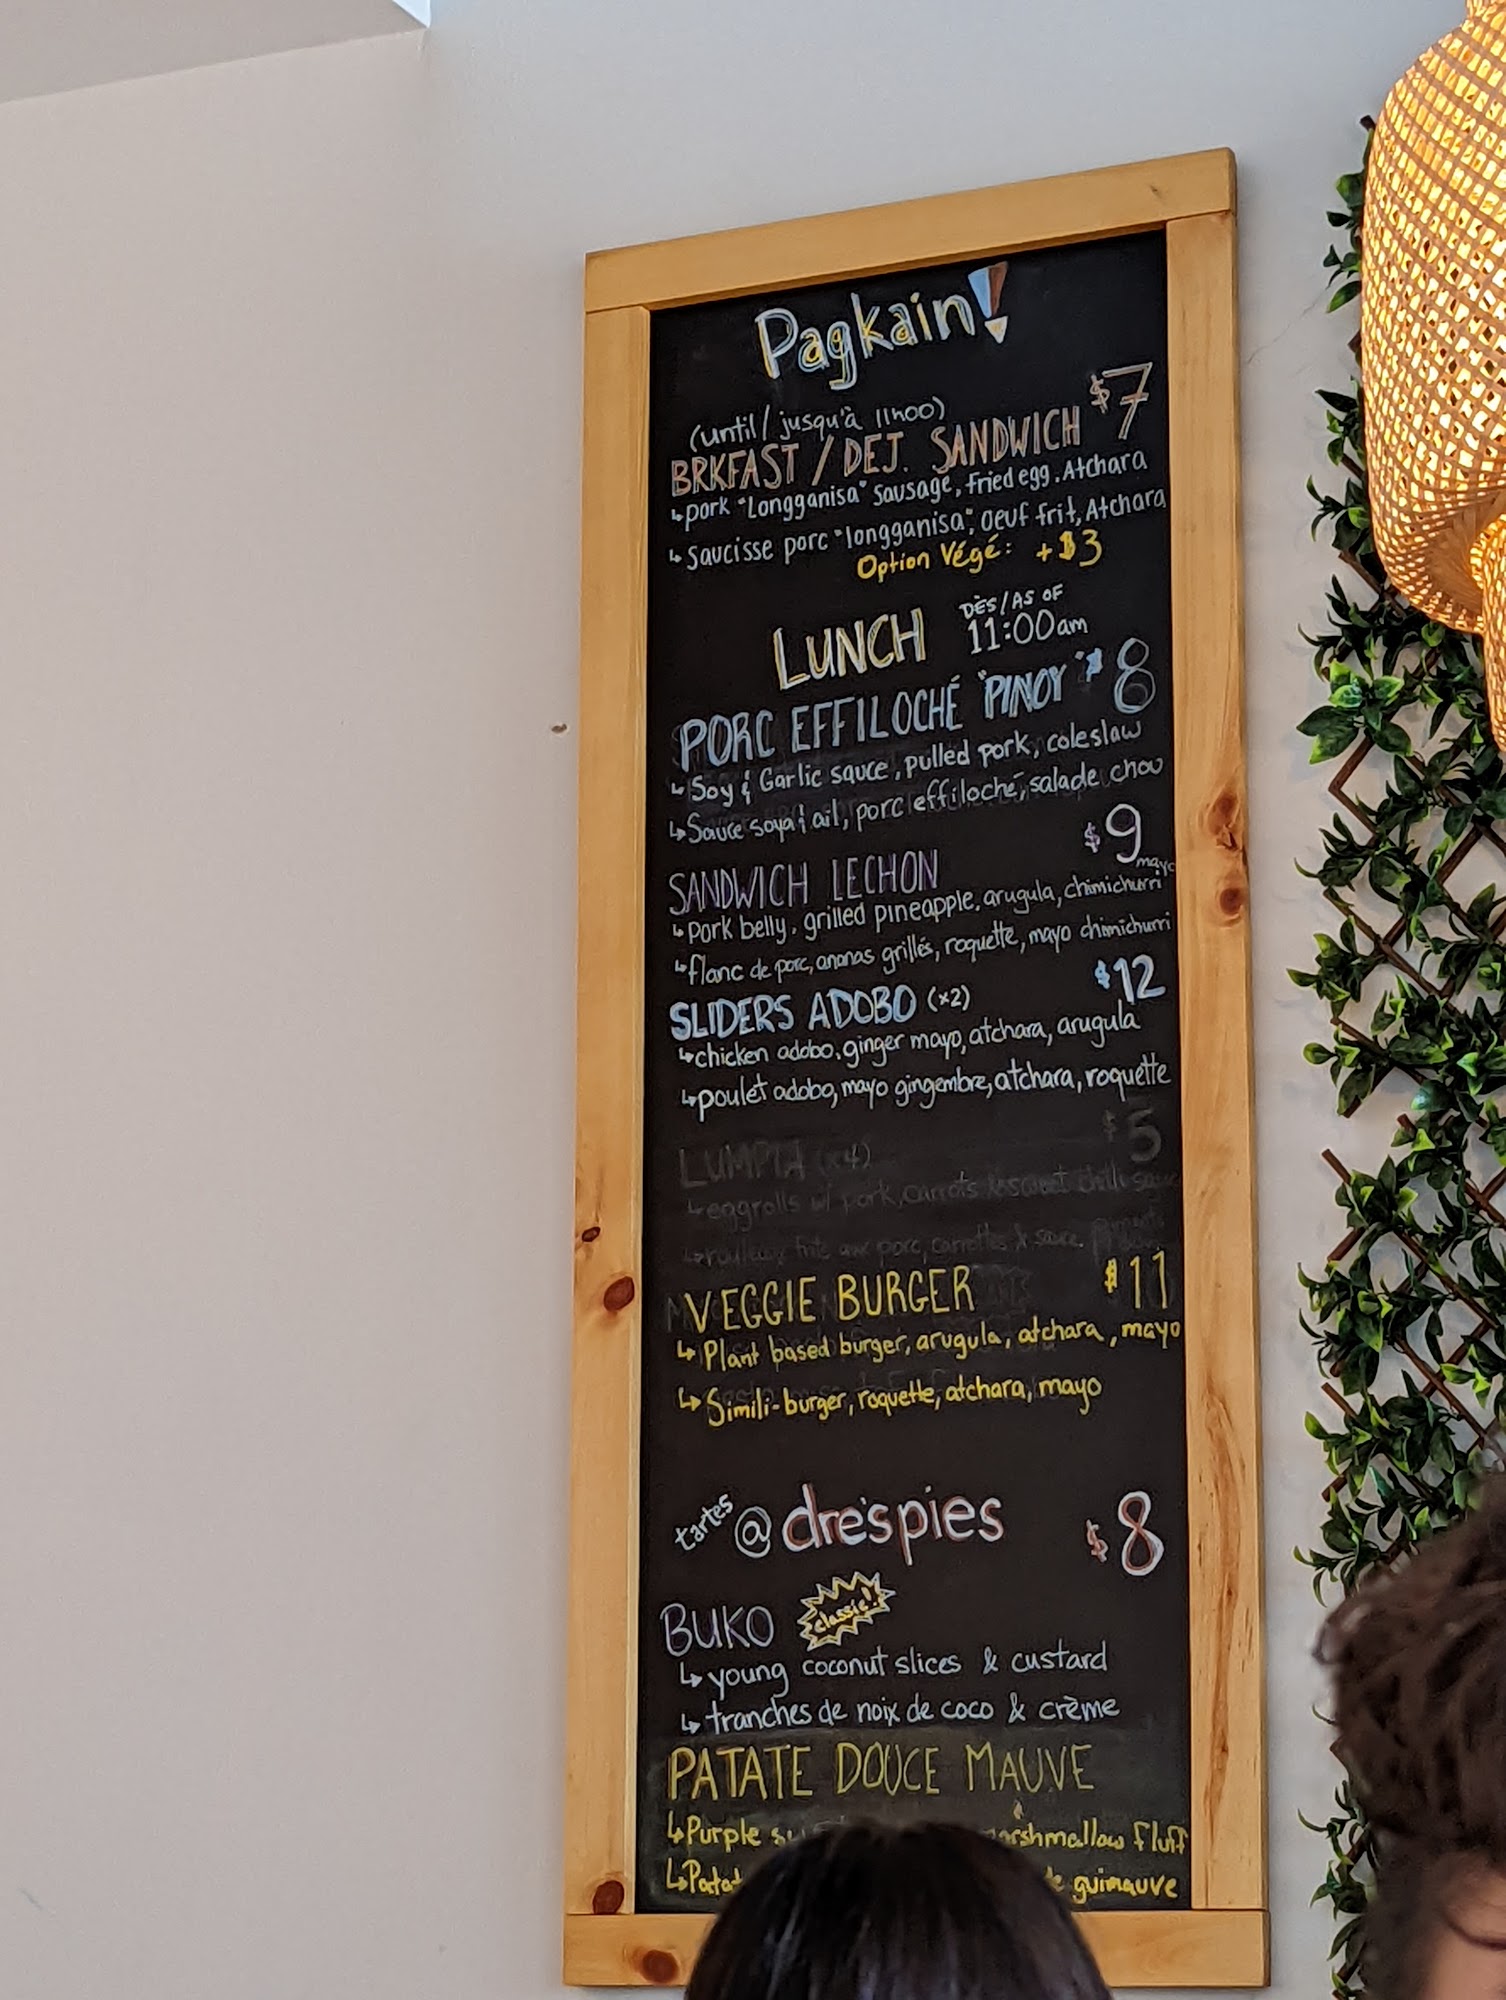 Pagkain!
(until / jusqu'à 11h00)
BRKFAST / DEJ. SANDWICH $7
↳ pork "Longganisa" sausage, fried egg. Atchara
↳ saucisse porc "longganisa", oeuf frit, Atchara
Option Végé: +$3
LUNCH DÈS/AS OF 11:00am
PORC EFFILOCHÉ "PINOY" $8
↳ Soy & Garlic sauce, pulled pork, coleslaw
↳ Sauce soya & ail, porc effiloché, salade chou
SANDWICH LECHON $9
↳ pork belly, grilled pineapple, arugula, chimichurri mayo
↳ flanc de porc, ananas grillés, roquette, mayo chimichurri
SLIDERS ADOBO (x2) $12
↳ chicken adobo, ginger mayo, atchara, arugula
↳ poulet adobo, mayo gingembre, atchara, roquette
LUMPIA (x4) $5
↳ eggrolls w/ pork, carrots & sweet chili sauce
↳ rouleaux frits aux porc, carrottes & sauce
VEGGIE BURGER $11
↳ Plant based burger, arugula, atchara, mayo
↳ Simili-burger, roquette, atchara, mayo
tartes @dre'spies $8
BUKO classic!
↳ young coconut slices & custard
↳ tranches de noix de coco & crème
PATATE DOUCE MAUVE
↳ Purple marshmallow fluff
↳ guimauve